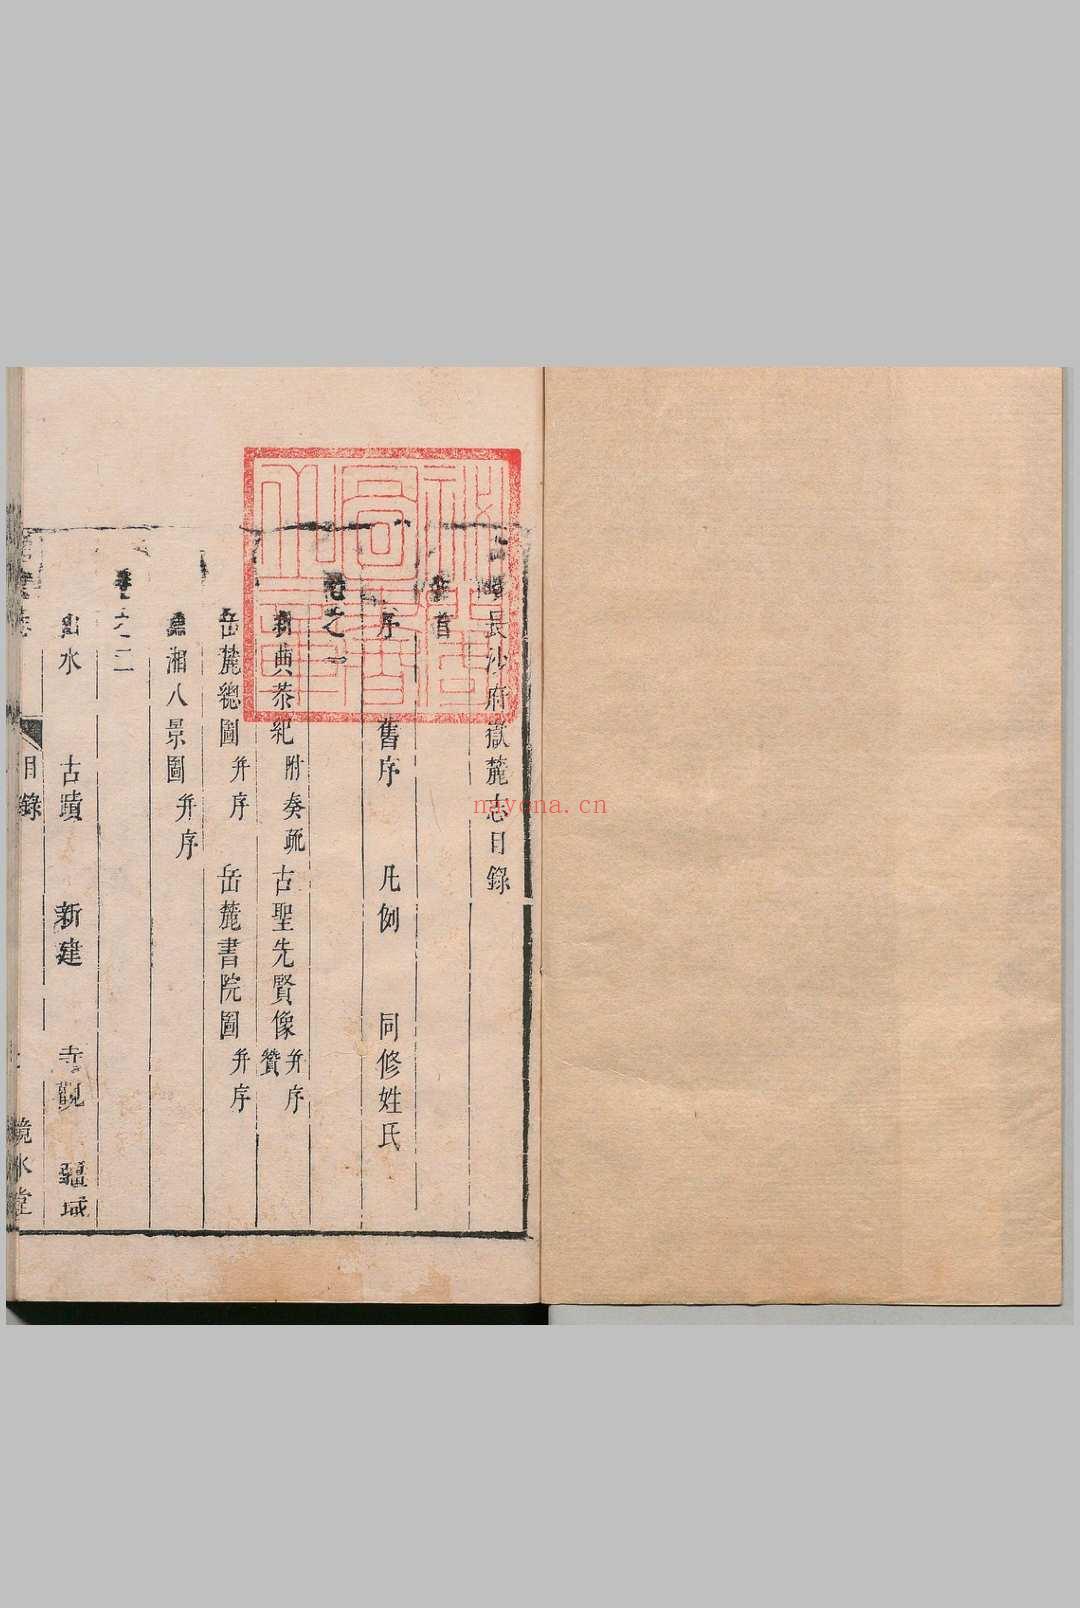 長沙府嶽麓志目錄
首
序 舊序 凡例 同修姓氏
卷之一
典恭紀 附奏疏 古聖先賢像 并序贊
岳麓總圖 并序 岳麓書院圖 并序
湘八景圖 并序
卷之二
山水 古蹟 新建 寺觀 疆域
目錄
鏡水堂
nayona.cn